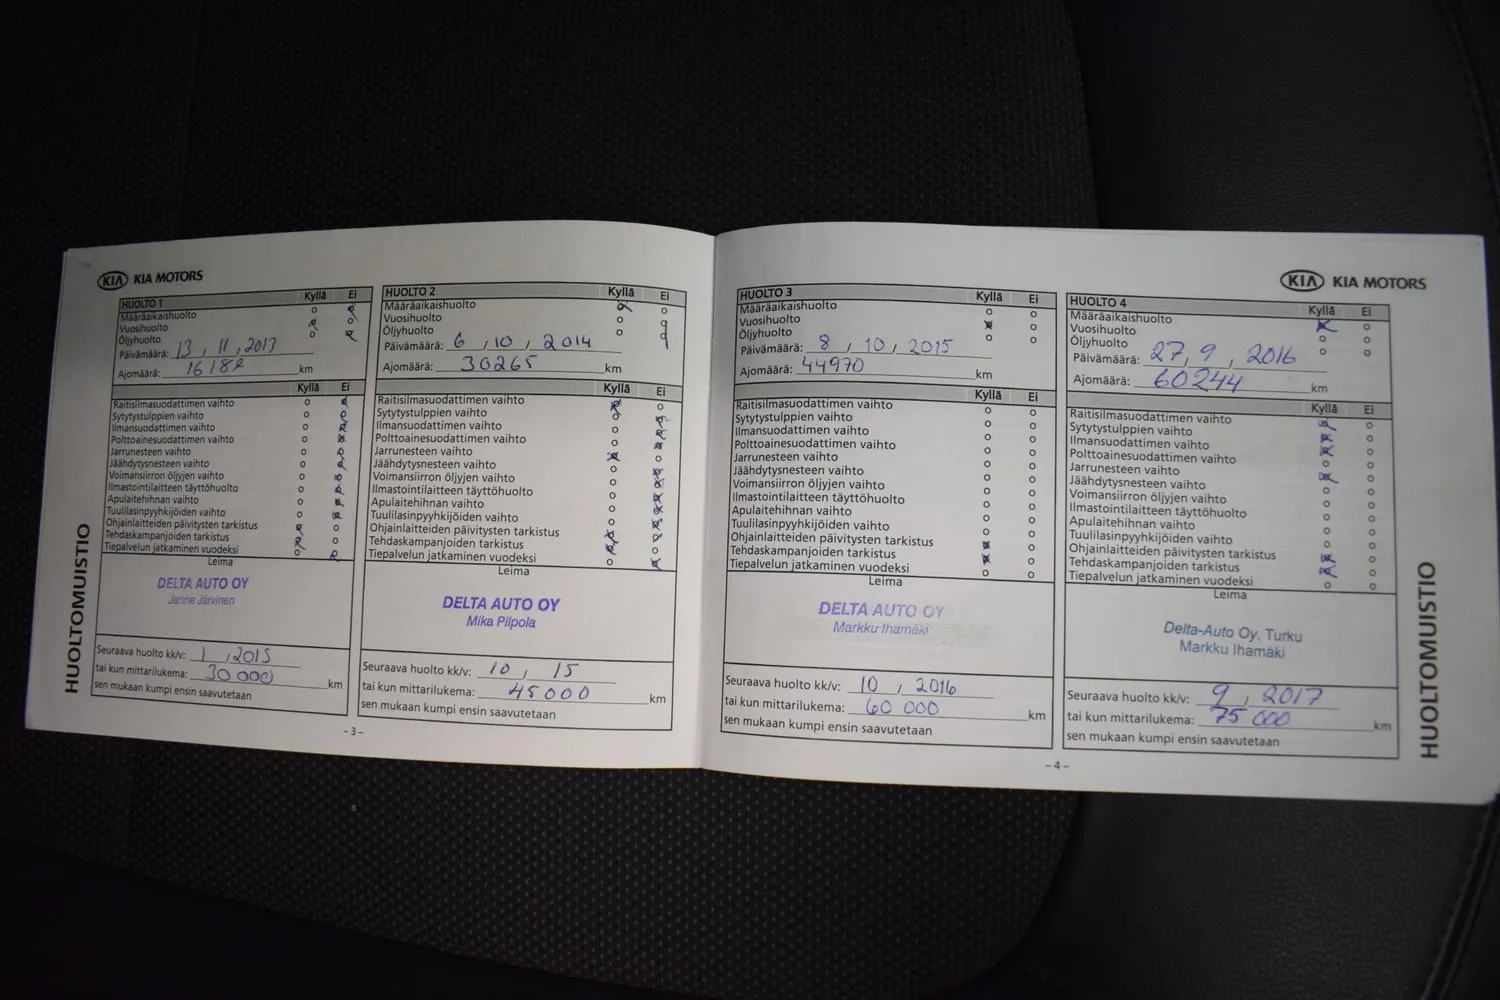 KIA KIA MOTORS
HUOLTO 1 Kyllä Ei
Määräaikaishuolto
Vuosihuolto
Öljyhuolto
Päivämäärä: 13, 11, 2013
Ajomäärä: km
Kyllä Ei
Raitisilmasuodattimen vaihto
Sytytystulppien vaihto
Ilmansuodattimen vaihto
Polttoainesuodattimen vaihto
Jarrunesteen vaihto
Jäähdytysnesteen vaihto
Voimansiirron öljyjen vaihto
Ilmastointilaitteen täyttöhuolto
Apulaitehihnan vaihto
Tuulilasinpyyhkijöiden vaihto
Ohjainlaitteiden päivitysten tarkistus
Tehdaskampanjoiden tarkistus
Tiepalvelun jatkaminen vuodeksi
Leima
DELTA AUTO OY
Janne Järvinen
Seuraava huolto kk/v: 1, 2015
tai kun mittarilukema: 30 000 km
sen mukaan kumpi ensin saavutetaan
HUOLTOMUISTIO
HUOLTO 2 Kyllä Ei
Määräaikaishuolto
Vuosihuolto
Öljyhuolto
Päivämäärä: 6, 10, 2014
Ajomäärä: 30265 km
Kyllä Ei
Raitisilmasuodattimen vaihto
Sytytystulppien vaihto
Ilmansuodattimen vaihto
Polttoainesuodattimen vaihto
Jarrunesteen vaihto
Jäähdytysnesteen vaihto
Voimansiirron öljyjen vaihto
Ilmastointilaitteen täyttöhuolto
Apulaitehihnan vaihto
Tuulilasinpyyhkijöiden vaihto
Ohjainlaitteiden päivitysten tarkistus
Tehdaskampanjoiden tarkistus
Tiepalvelun jatkaminen vuodeksi
Leima
DELTA AUTO OY
Mika Piipola
Seuraava huolto kk/v: 10, 15
tai kun mittarilukema: 45000 km
sen mukaan kumpi ensin saavutetaan
- 3 -
KIA KIA MOTORS
HUOLTO 3 Kyllä Ei
Määräaikaishuolto
Vuosihuolto
Öljyhuolto
Päivämäärä: 8, 10, 2015
Ajomäärä: 44970 km
Kyllä Ei
Raitisilmasuodattimen vaihto
Sytytystulppien vaihto
Ilmansuodattimen vaihto
Polttoainesuodattimen vaihto
Jarrunesteen vaihto
Jäähdytysnesteen vaihto
Voimansiirron öljyjen vaihto
Ilmastointilaitteen täyttöhuolto
Apulaitehihnan vaihto
Tuulilasinpyyhkijöiden vaihto
Ohjainlaitteiden päivitysten tarkistus
Tehdaskampanjoiden tarkistus
Tiepalvelun jatkaminen vuodeksi
Leima
DELTA AUTO OY
Markku Ihamäki
Seuraava huolto kk/v: 10, 2016
tai kun mittarilukema: 60 000 km
sen mukaan kumpi ensin saavutetaan
HUOLTO 4 Kyllä Ei
Määräaikaishuolto
Vuosihuolto
Öljyhuolto
Päivämäärä: 27, 9, 2016
Ajomäärä: 60244 km
Kyllä Ei
Raitisilmasuodattimen vaihto
Sytytystulppien vaihto
Ilmansuodattimen vaihto
Polttoainesuodattimen vaihto
Jarrunesteen vaihto
Jäähdytysnesteen vaihto
Voimansiirron öljyjen vaihto
Ilmastointilaitteen täyttöhuolto
Apulaitehihnan vaihto
Tuulilasinpyyhkijöiden vaihto
Ohjainlaitteiden päivitysten tarkistus
Tehdaskampanjoiden tarkistus
Tiepalvelun jatkaminen vuodeksi
Leima
Delta-Auto Oy, Turku
Markku Ihamäki
Seuraava huolto kk/v: 9, 2017
tai kun mittarilukema: 75 000 km
sen mukaan kumpi ensin saavutetaan
- 4 -
HUOLTOMUISTIO